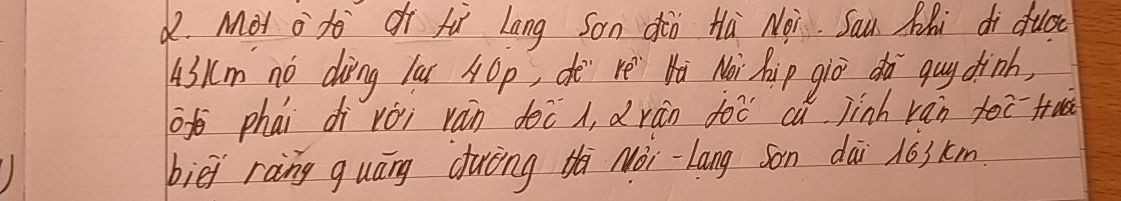 2. Một ô tô đi từ Lạng Sơn đến Hà Nội. Sau khi đi được
43km nó dừng lại 40p, để về Hà Nội kịp giờ đã quy định,
ôtô phải đi với vận tốc 1,2 vận tốc cũ. Tính vận tốc trước
biết rằng quãng đường Hà Nội - Lạng Sơn dài 163km.